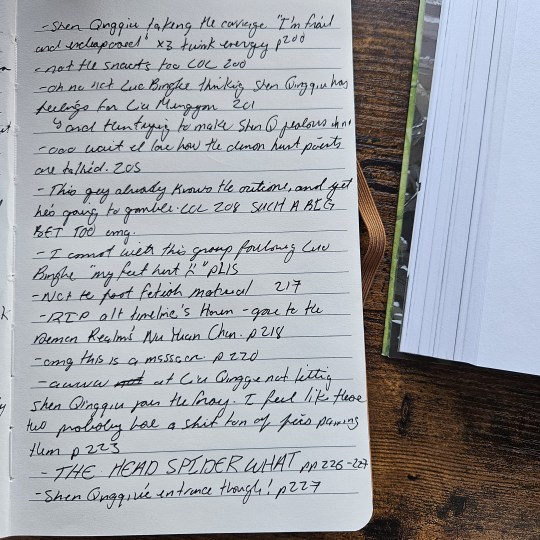 - Shen Qingqiu faking the carriage "I'm frail
and endangered" x3 twink energy p200
- not the snacts too LOL 200
- oh no not Luo Binghe thinking Shen Qingqiu has
feelings for Liu Mingyan 201
↳ and then trying to make Shen Q jealous oh no
- ooo wait I love how the demon hunt points
are tallied. 205
- This guy already knows the outcome, and yet
he's going to gamble. LOL 208 SUCH A BIG
BET TOO omg.
- I cannot with this group following Luo
Binghe "my feet hurt" p215
- Not the foot fetish material 217
- RIP alt timeline's Harem - gone to the
Demon Realms Nu Yuan Chan. p218
- omg this is a massacre p220
- awwww at Liu Qingge not letting
Shen Qingqiu join the fray. I feel like these
two probably have a shit ton of fics
them p223
- THE HEAD SPIDER WHAT pp 226-227
- Shen Qingqiu's entrance though! p227